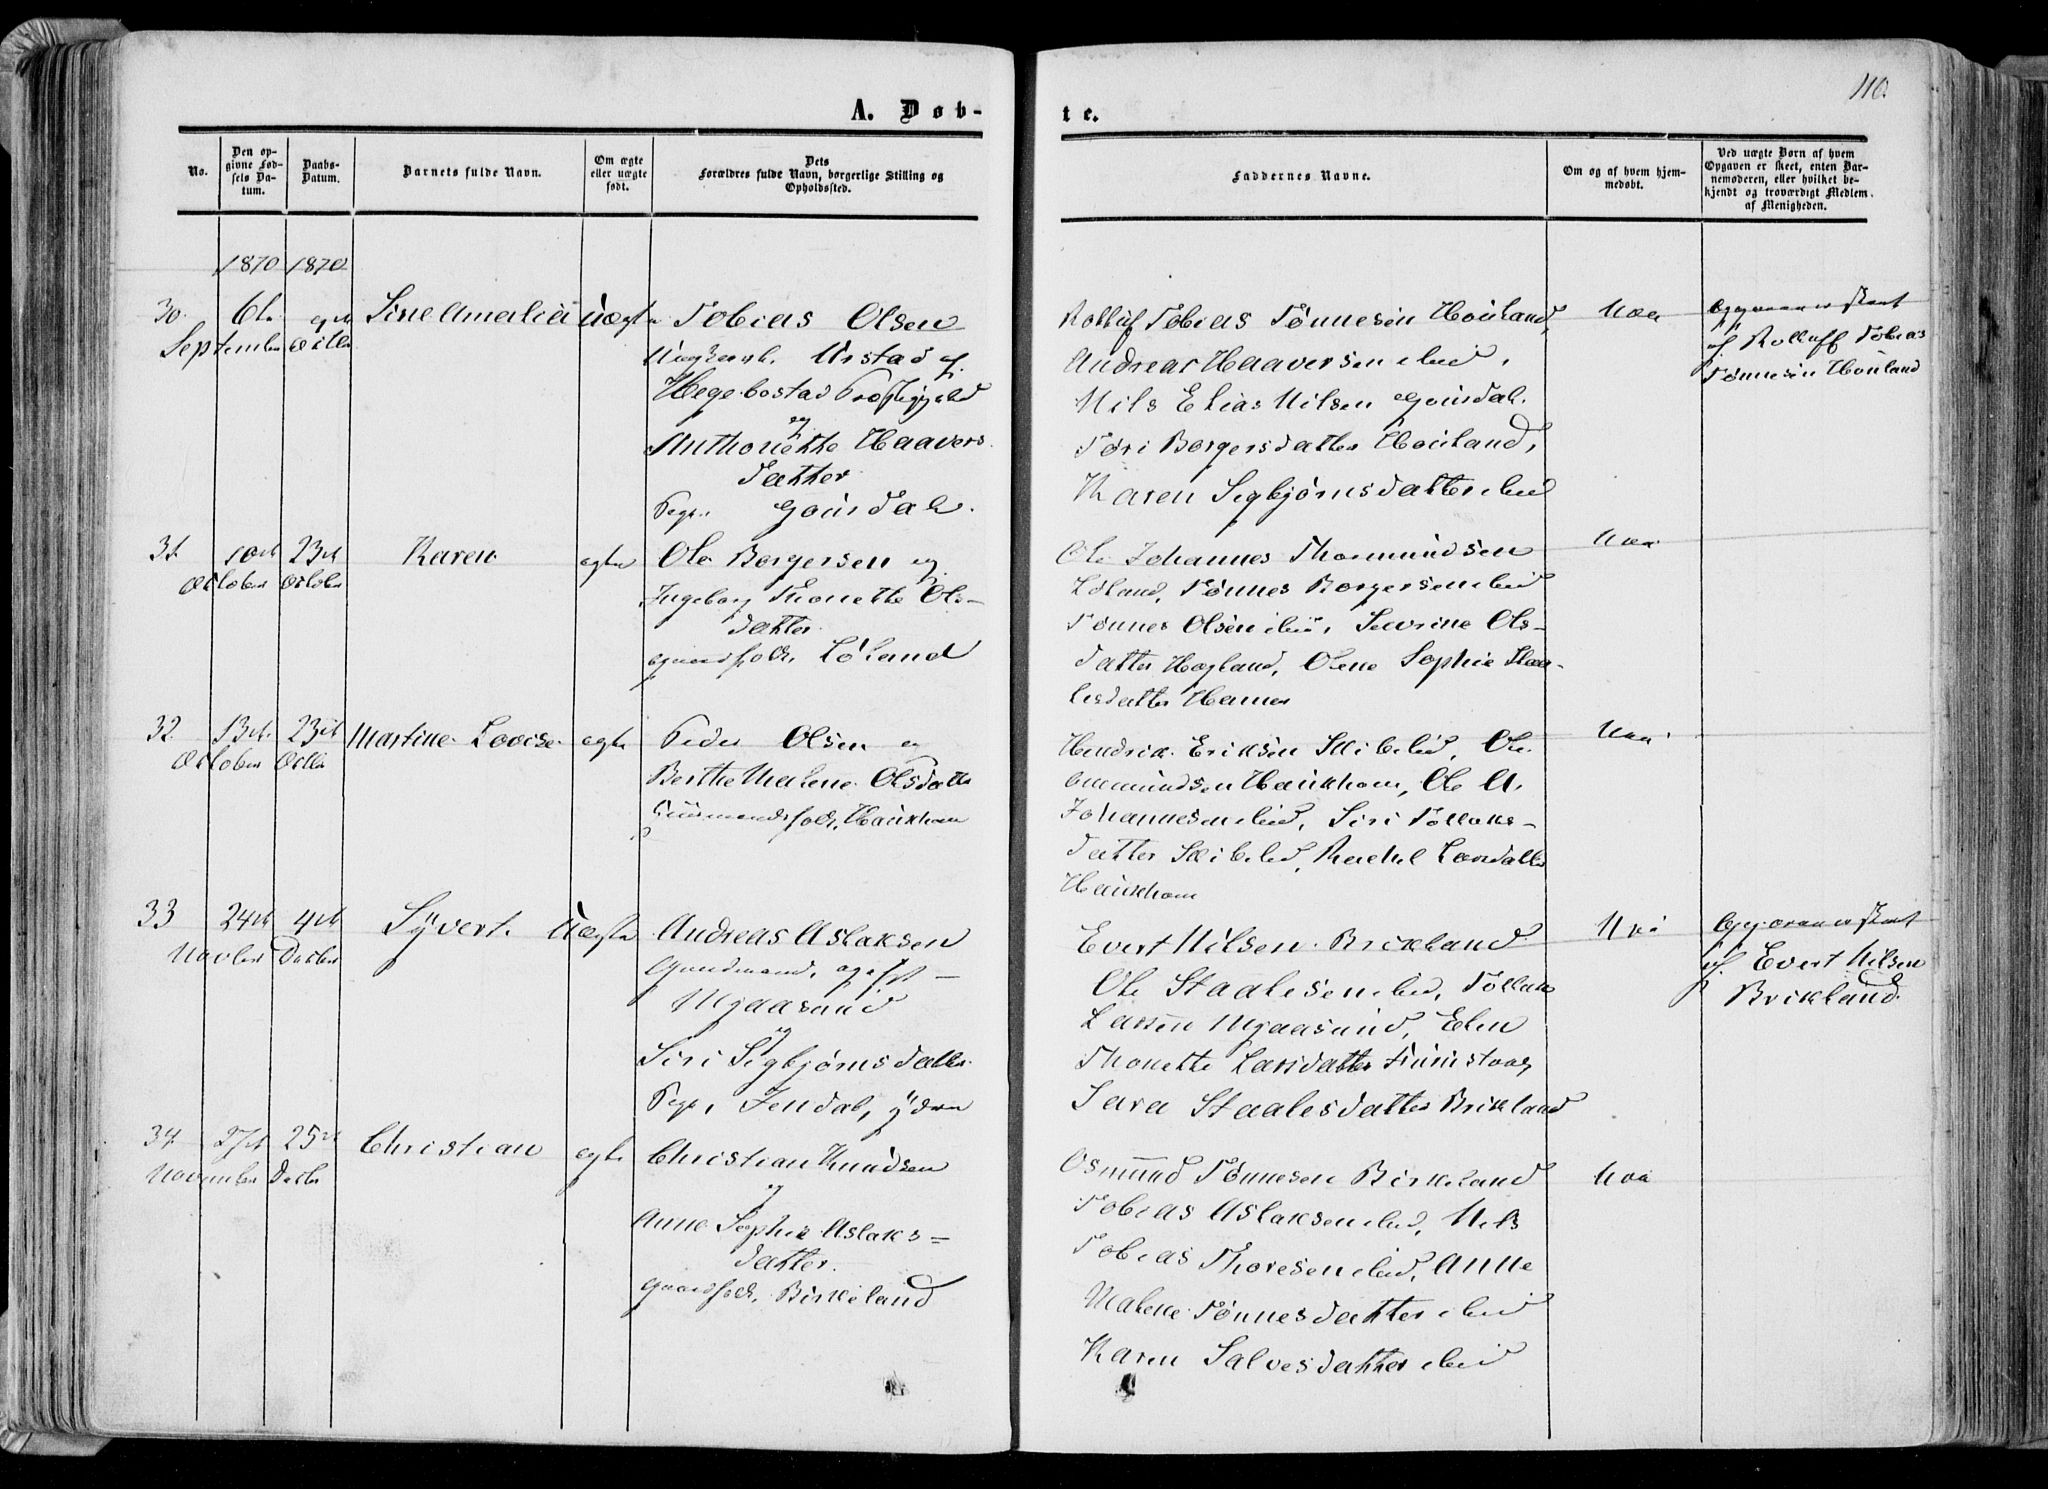 110.
A. Døb-
te.
No.
Den op-
givne Fød-
sels Da-
tum.
Daabs-
Datum.
Barnets fulde Navn.
Om ægte
eller uægte
født.
Dets
Forældres fulde Navn, borgerlige Stilling og
Opholdssted.
Faddernes Navne.
Om og af hvem hjem-
medøbt.
Ved uægte Børn af hvem
Opgaven er skeet, enten Bar-
nemoderen, eller hvilket be-
kjendt og troværdigt Medlem
af Menigheden.
1870 1870
30. 6te
September Octbr
Sine Amalia
Uægte
Tobias Olsen
Ungkarl. Urstad af
Hegebostad Præstegjeld
og
Anthonette Haavers
datter
Pige. Gousdal.
Rolluf Tobias Tønnesen Houland,
Andreas Haaversen ibid,
Nils Elias Nilsen Gousdal.
Tori Borgersdatter Houland,
Karen Sigbjørnsdatter ibid
Naa
Opgaven er skeet
af Rolluff Tobias
Tønnesen Houland
31. 10de 23de
October October
Karen
egte
Ole Borgersen og
Ingeborg Thonette Ols-
datter
Gaardfolk, Løland
Ole Johannes Thormundsen
Løland, Tønnes Borgersen ibid
Tønnes Olsen ibid, Sevrine Ols-
datter Hogland, Olene Sophie Staa-
lesdatter Hamer
Naa
32. 13de 23de
October Octbr
Martine Lovise
egte
Peder Olsen og
Berthe Malene Olsdatter
Huusmandsfolk, Haukhom
Hendrik Eriksen Skibelid, Ole
Ommundsen Haukhom, Ole A.
Johannesen ibid, Siri Tollaks-
datter Skibelid, Rachel Larsdatter
Haukhom
Naa
33 24de 4de
Novbr Decbr
Syvert.
Uægte
Andreas Aslaksen
Gaardmand, og gift
Mjaasund
og
Siri Sigbjørnsdatter
Pige, Jendal, ydre
Evert Nilsen Brikland
Ole Staalesen ibid, Tollak
Larsen Mjaasund, Elen
Thonette Larsdatter
Sara Staalesdatter Brikland
Naa
Opgaven er skeet
af Evert Nilsen
Brikland.
34 27de 25de
November Decbr
Christian
egte
Christian Knudsen
og
Anne Sophie Aslaks=
datter.
Gaardfolk, Birkeland
Osmund Tønnesen Birkeland
Tobias Aslaksen ibid, Nils
Tobias Thoresen ibid, Anne
Malene Tønnesdatter ibid
Karen Salvesdatter ibid
Naa